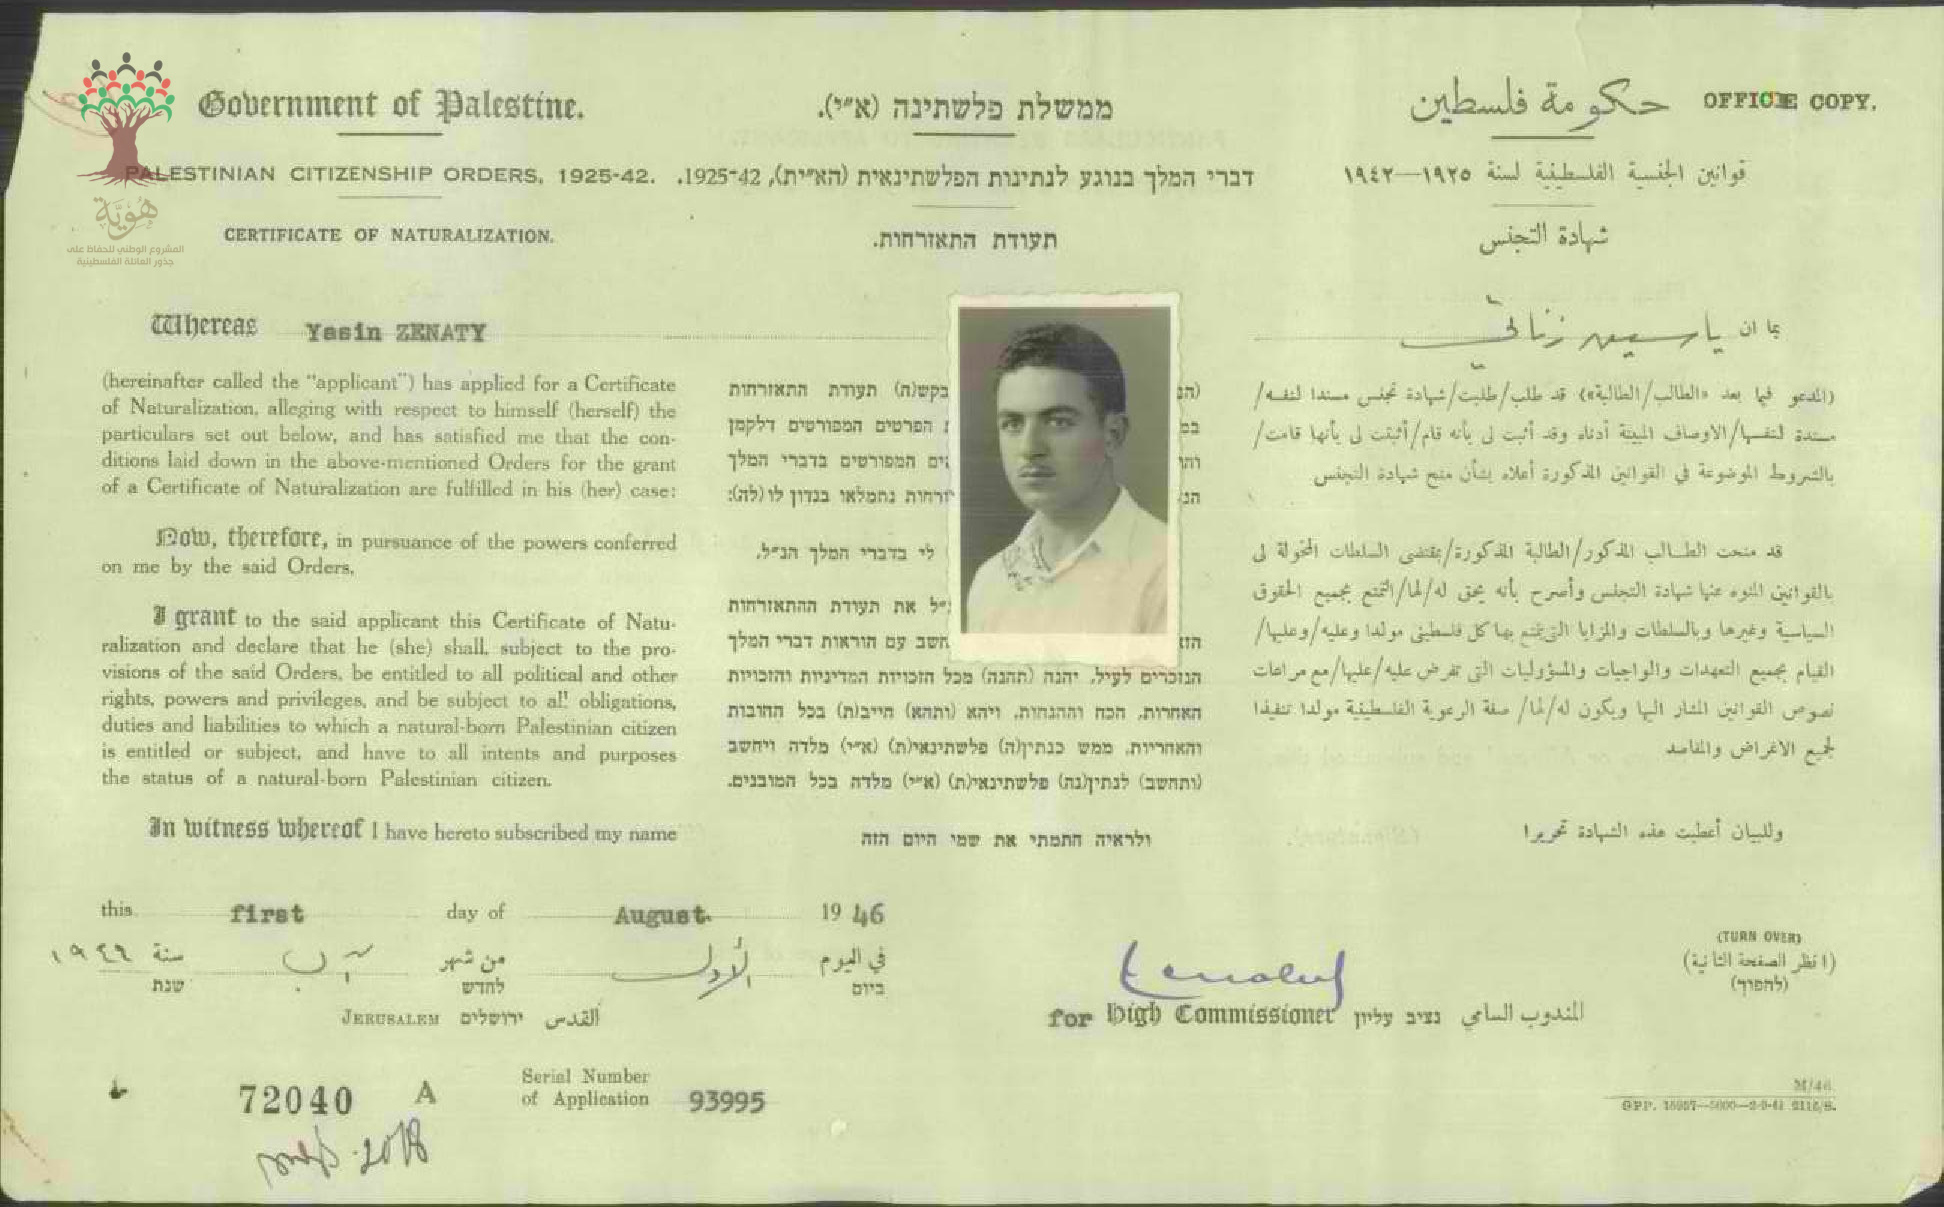 Government of Palestine.
ממשלת פלשתינה (א״י).
حكومة فلسطين
OFFICE COPY.
PALESTINIAN CITIZENSHIP ORDERS, 1925-42.
דברי המלך בנוגע לנתינות הפלשתינאית (הא״ית), 1925-42.
قوانين الجنسية الفلسطينية لسنة ١٩٢٥—١٩٤٢
هُوِيَّة
المشروع الوطني للحفاظ على
جذور العائلة الفلسطينية
CERTIFICATE OF NATURALIZATION.
תעודת התאזרחות.
شهادة التجنس
Whereas Yasin ZENATY
(hereinafter called the "applicant") has applied for a Certificate
of Naturalization, alleging with respect to himself (herself) the
particulars set out below, and has satisfied me that the con-
ditions laid down in the above-mentioned Orders for the grant
of a Certificate of Naturalization are fulfilled in his (her) case:
Now, therefore, in pursuance of the powers conferred
on me by the said Orders,
I grant to the said applicant this Certificate of Natu-
ralization and declare that he (she) shall, subject to the pro-
visions of the said Orders, be entitled to all political and other
rights, powers and privileges, and be subject to all obligations,
duties and liabilities to which a natural-born Palestinian citizen
is entitled or subject, and have to all intents and purposes
the status of a natural-born Palestinian citizen.
In witness whereof I have hereto subscribed my name
בקש(ה) תעודת התאזרחות
הפרטים המפורטים דלקמן
המפורטים בדברי המלך
נתמלאו בנדון לו (לה):
לי בדברי המלך הנ״ל,
את תעודת ההתאזרחות
עם הוראות דברי המלך
הנזכרים לעיל, יהנה (תהנה) מכל הזכויות המדיניות והזכויות
האחרות, הכח וההנחות, ויהא (ותהא) חייב(ת) בכל החובות
והאחריות, ממש כנתין(ה) פלשתינאי(ת) (א״י) מלדה ויחשב
(ותחשב) לנתין(נה) פלשתינאי(ת) (א״י) מלדה בכל המובנים.
ולראיה חתמתי את שמי היום הזה
بما ان ياسين زناتي
(المدعو فيما بعد «الطالب/الطالبة») قد طلب/طلبت/شهادة تجنس مسندا لنفسه/
مسندة لنفسها/الاوصاف المبينة أدناه وقد أثبت لى بأنه قام/أثبتت لى بأنها قامت/
بالشروط الموضوعة في القوانين المذكورة أعلاه بشأن منح شهادة التجنس
قد منحت الطالب المذكور/الطالبة المذكورة/بمقتضى السلطات المخولة لى
بالقوانين المنوه عنها شهادة التجنس وأصرح بأنه يحق له/لها/التمتع بجميع الحقوق
السياسية وغيرها وبالسلطات والمزايا التى يتمتع بها كل فلسطينى مولدا وعليه/وعليها/
القيام بجميع التعهدات والواجبات والمسؤوليات التى تفرض عليه/عليها/مع مراعات
نصوص القوانين المشار اليها ويكون له/لها/ صفة الرعوية الفلسطينية مولدا تنفيذا
لجميع الاغراض والمقاصد
وللبيان أعطيت هذه الشهادة تحريرا
this first day of August 1946
في اليوم الأول من شهر آب سنة ١٩٤٦
ביום לחדש שנת
JERUSALEM ירושלים القدس
for High Commissioner נציב עליון المندوب السامي
(TURN OVER)
(انظر الصفحة الثانية)
(להפוך)
72040 A
Serial Number
of Application 93995
M/46.